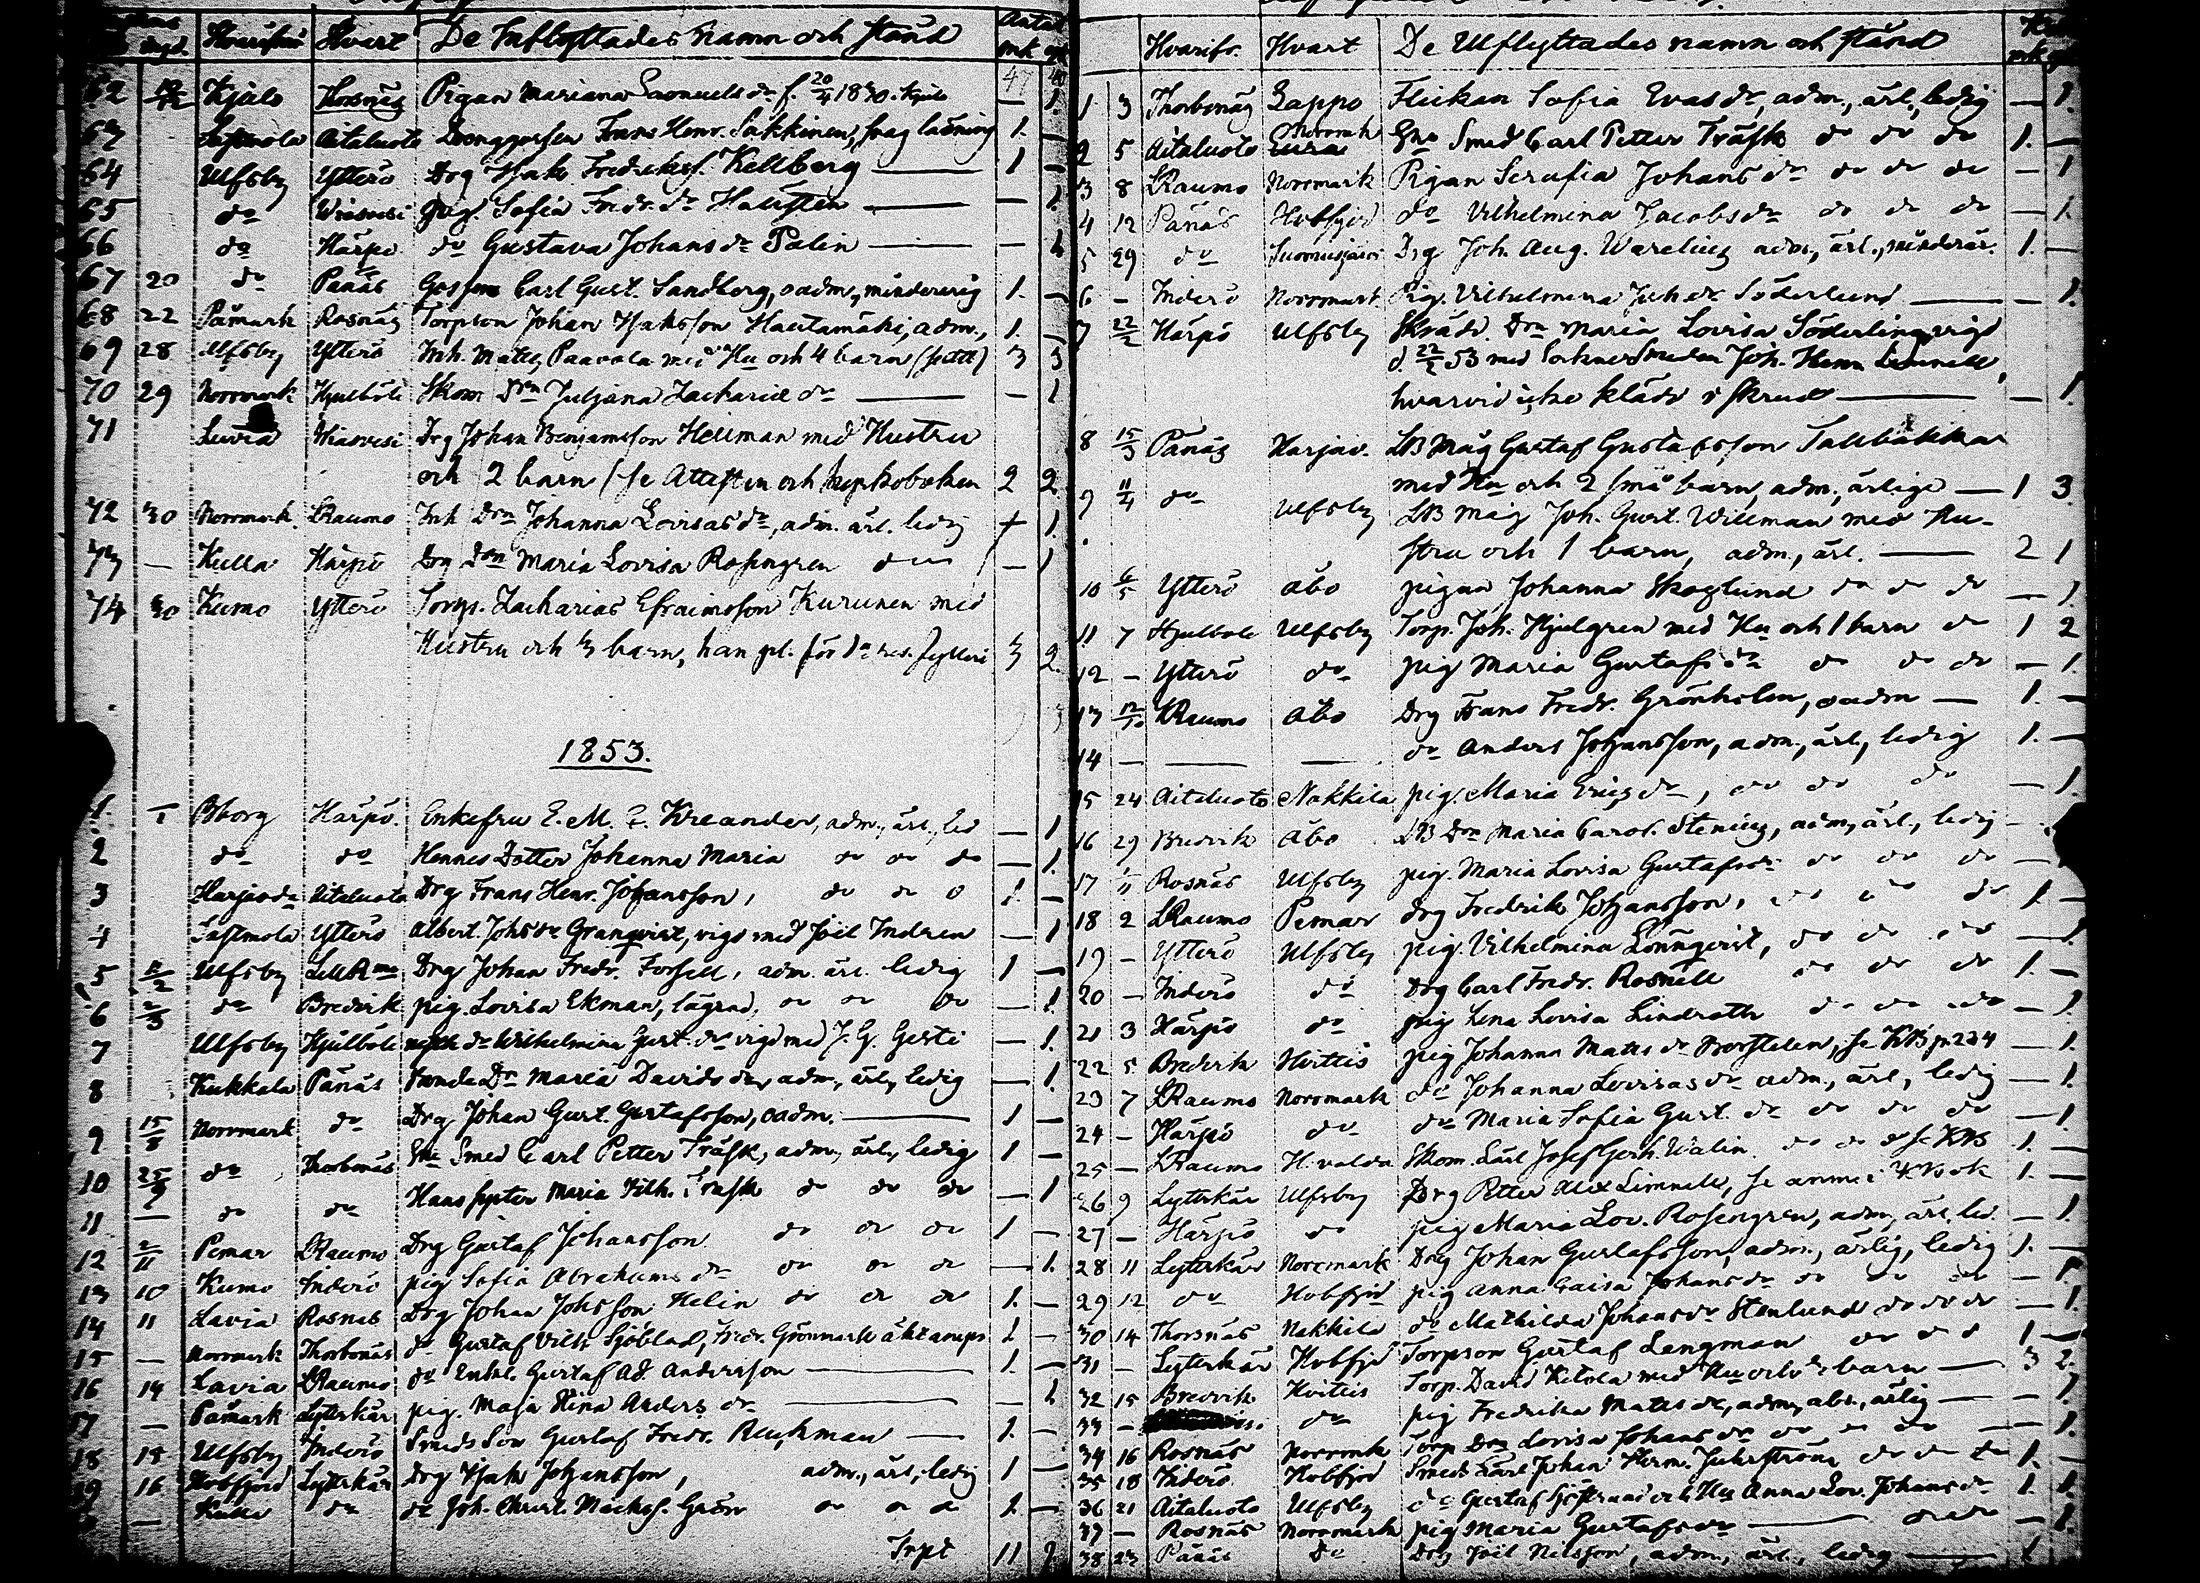 Hvarifrån Hvart De Inflyttades Namn och stånd Antal
mk qk
62 Kjulo Thorsnäs Pigan Mariana Samuels dr f. 20/4 1830. Kjulo — 1.
63 Aitaluoto Frans Henr. Sakkinen, svag läsning 1. —
64 Ulfsby Ytterö Drg Isak Fredrikss. Kellberg — 1 —
65 do Wiasvesi pig. Sofia Fredr. dr — — 1.
66 do Härpö do Gustava Johans dr Palin — — 1
67 20 do Pånäs Gossen Carl Gust. Sandberg, oadm., minderårig 1. —
68 22 Påmark Rosnäs Torpson Johan Isaksson Hautamäki, adm., 1. —
69 28 Ulfsby Ytterö Inh. Matts Paavola med Hu och 4 barn (sitt) 3 3
70 29 Norrmark Hjulböle Skom Drn Juljana Zacharie dr — — 1
71 Luvia Wiasvesi Drg Johan Benjamsson Hellman med Hustru
och 2 barn (se Attesten och 2 2
72 30 Norrmark LRaumo Inh Drn Johanna Lovisas dr, adm. ärl. ledig + 1.
73 — Kulla Härpö Drg Drn Maria Lovisa Rosengren do — 1
74 30 Kumo Ytterö Torp. Zacharias Efraimsson Kurunen med
Hustru och 3 barn, han pl. för 3 2
1853.
1. Bborg Härpö. Enkefru E. M. Kreander, adm., ärl., led — 1
2 do do Hennes Dotter Johanna Maria do do do — 1.
3 Harjavda Aitaluoto Drg Frans Henr. Johansson, do do do 1. —
4 Sastmola Ytterö Albert. Johs dr Granqvist, vigd med Joel Indren — 1
5 Ulfsby LillRmo Drg Johan Fredr. Forsell, adm. ärl. ledig 1 —
6 do Bredvik pig. Lovisa Ekman, do do do — 1.
7 Ulfsby Hjulböle Wilhelmina Gust. dr vigd med J. G. — 1.
8 Kukkala Pånäs Maria Davids dr, adm., ärl., ledig — 1.
9 15/8 Norrmark do Drg Johan Gust. Gustafsson, oadm. — 1 —
10 25/9 do Thorbonäs Smed Carl Petter Träsk, adm., ärl., ledig 1 —
11 — do do Hans syster Maria Vilh. Träsk do do do — 1
12 2/11 Pemar LRaumo Drg Gustaf Johansson do do do 1 —
13 10 Kumo Inderö pig Sofia Abrahams dr do do do — 1.
14 11 Lavia Rosnäs Drg Johan Johsson Helin do do do 1. —
15 — Norrmark Thorbonäs do Gustaf Vilh. Sjöblad, Fredr. Grönmark 1 —
16 14 Lavia LRaumo do Enkl. Gustaf Ad. Andersson — 1. —
17 — Påmark Lyterkär pig. Maja Stina Anders dr — — 1
18 15 Ulfsby Inderö Smeds Son Gustaf Fredr. — 1. —
19 16 Hvbfjord Lyterkär Drg Isak Johansson, adm., ärl., ledig 1 —
— Kulla do do Joh. Christ. Grön do do do 1. —
Trpt 11 9.
Hvarifr. Hvart De Utflyttades namn och stånd
mk
1 3 Thorbonäs Lappo Flickan Sofia Evas dr, adm., ärl., ledig — 1.
2 5 Aitaluoto Norrmk Smed Carl Petter Träsk do do do 1. —
3 8 LRaumo Norrmark Pigan Serafia Johans dr do do do — 1
4 12 Pånäs Hvbfjrd do Vilhelmina Jacobs dr do do do — 1.
5 29 do Suomusjärvi Drg Joh. Aug. Warelius adm., ärl., minderår. 1. —
6 — Inderö Norrmark Pig. Vilhelmina Joh. dr Söderlund — — 1.
7 22/2 Härpö Ulfsby Skrädd. Drn Maria Lovisa Söderling, vigd
d. 22/2 53 med Sockne Smeden Joh. Henr.
hvarvid icke klädd i skrud — — 1.
8 15/3 Pånäs Harjav. LB Måg Gustaf Gustafsson Tallbacka
med Hu och 2 små barn, adm., ärliga — 1 3
9 11/4 do Ulfsby LB Måg Joh. Gust. Willman med Hu-
stru och 1 barn, adm., ärl. — 2 1
10 6/5 Ytterö Åbo pigan Johanna Skoglund do do do — 1.
11 7 Hjulböle Ulfsby Torp. Joh. Hjulgren med Hu och 1 barn do 1 2
12 — Ytterö do pig Maria Gustafs dr do do do — 1.
13 12/10 LRaumo Åbo Drg Frans Fredr. Grönholm, oadm — 1. —
14 — — — do Anders Johansson, adm., ärl., ledig 1. —
15 24 Aitaluoto Nakkila pig. Maria Eriks dr, do do do — 1.
16 29 Bredvik Åbo LB Drn Maria Carol. Stenius, adm., ärl., ledig —
17 1/11 Rosnäs Ulfsby pig. Maria Lovisa Gustafs dr do do do —
18 2 LRaumo Pemar Drg Fredrik Johansson, do do do 1 —
19 — Ytterö Ulfsby pig. Vilhelmina Lönnqvist, do do do — 1
20 — Inderö do Drg Carl Fredr. Rosnell do do do 1. —
21 3 Härpö do pig Lena Lovisa Lindroth do do do — 1
22 5 Bredvik Hvittis pig Johanna Matts dr se KB p 234 — 1.
23 7 LRaumo Norrmark do Johanna Lovisas dr adm., ärl., ledig — 1.
24 — Härpö do do Maria Sofia Gust. dr do do do — 1.
25 — LRaumo Skom. Lärl Josef Gerh. Walin do do do se KB 1. —
26 9 Lyterkär Ulfsby Drg Petter Alex Limnell, se anm i KB 1. —
27 — Härpö do pig Maria Lov. Rosengren, adm., ärl. led. — 1.
28 11 Lyterkär Norrmark Drg Johan Gustafsson, adm., ärlig, ledig 1. —
29 12 do Hvbfjrd pig Anna Caisa Johans dr do do do — 1.
30 14 Thorsnäs Nakkila do Mathilda Johans dr Stenlund do do do — 1.
31 — Lyterkär Hvbfjd Torpson Gustaf Lengman do do d 1 —
32 15 Bredvik Hvittis Torp. David Ketola med Hu och barn — 3 2.
33 — do pig Fredrika Matts dr, adm., abs., ärlig — — 1
34 16 Rosnäs Norrmk Torp Drn Lovisa Johans dr do do do — 1.
35 18 Inderö Hvbfjrd Smeds Lärl Johan Herm. do do do 1. —
36 21 Aitaluoto Ulfsby do Gustaf Sjöstrand och Hu Anna Lov. Johans dr 1. 1.
37 — Rosnäs Norrmark pig Maria Gustafs dr — do do — 1.
38 23 Pånäs Do Drg Joel Nilsson, adm., ärl., ledig — 1